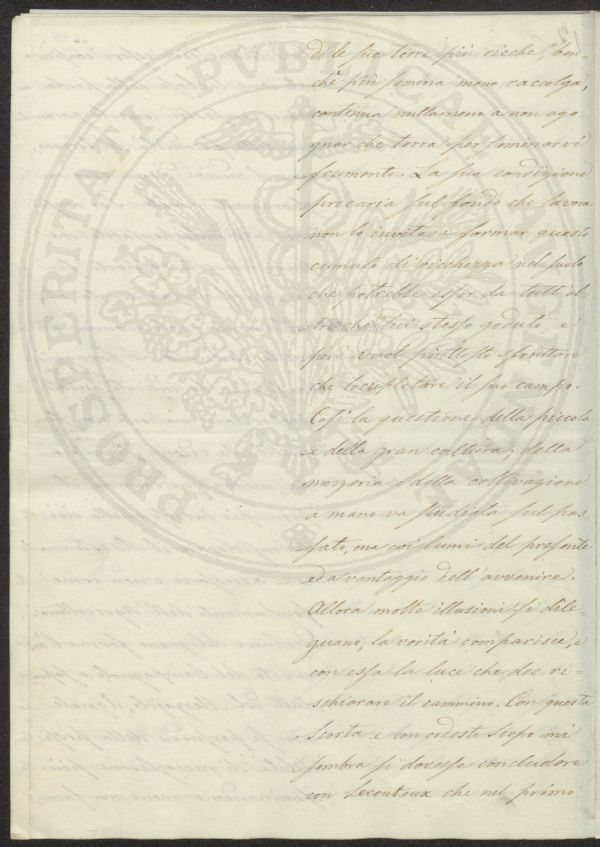 PROSPERITATI PUBLICAE AUGENDAE
do le sue terre più ricche, ben-
chè più semina meno raccolga,
continua nullameno a non ago-
gnar che terra per seminarvi
frumento. La sua condizione
precaria sul fondo che lavora
non lo invita a formar questo
cumulo di ricchezza nel suolo
che potrebbe esser da tutt'al
tri che lui stesso goduto, e
però vuol piuttosto sfruttare
che locupletare il suo campo.
Così la questione della piccola
e della gran cultura; della
mezzeria e della coltivazione
a mano va studiata sul pas
sato, ma coi lumi del presente
ed a vantaggio dell'avvenire.
Allora molte illusioni si dile-
guano, la verità comparisce, e
con essa la luce che dee ri-
schiarare il cammino. Con questa
scorta e con codesto scopo mi
sembra si dovesse concludere
con Lecouteux che nel primo